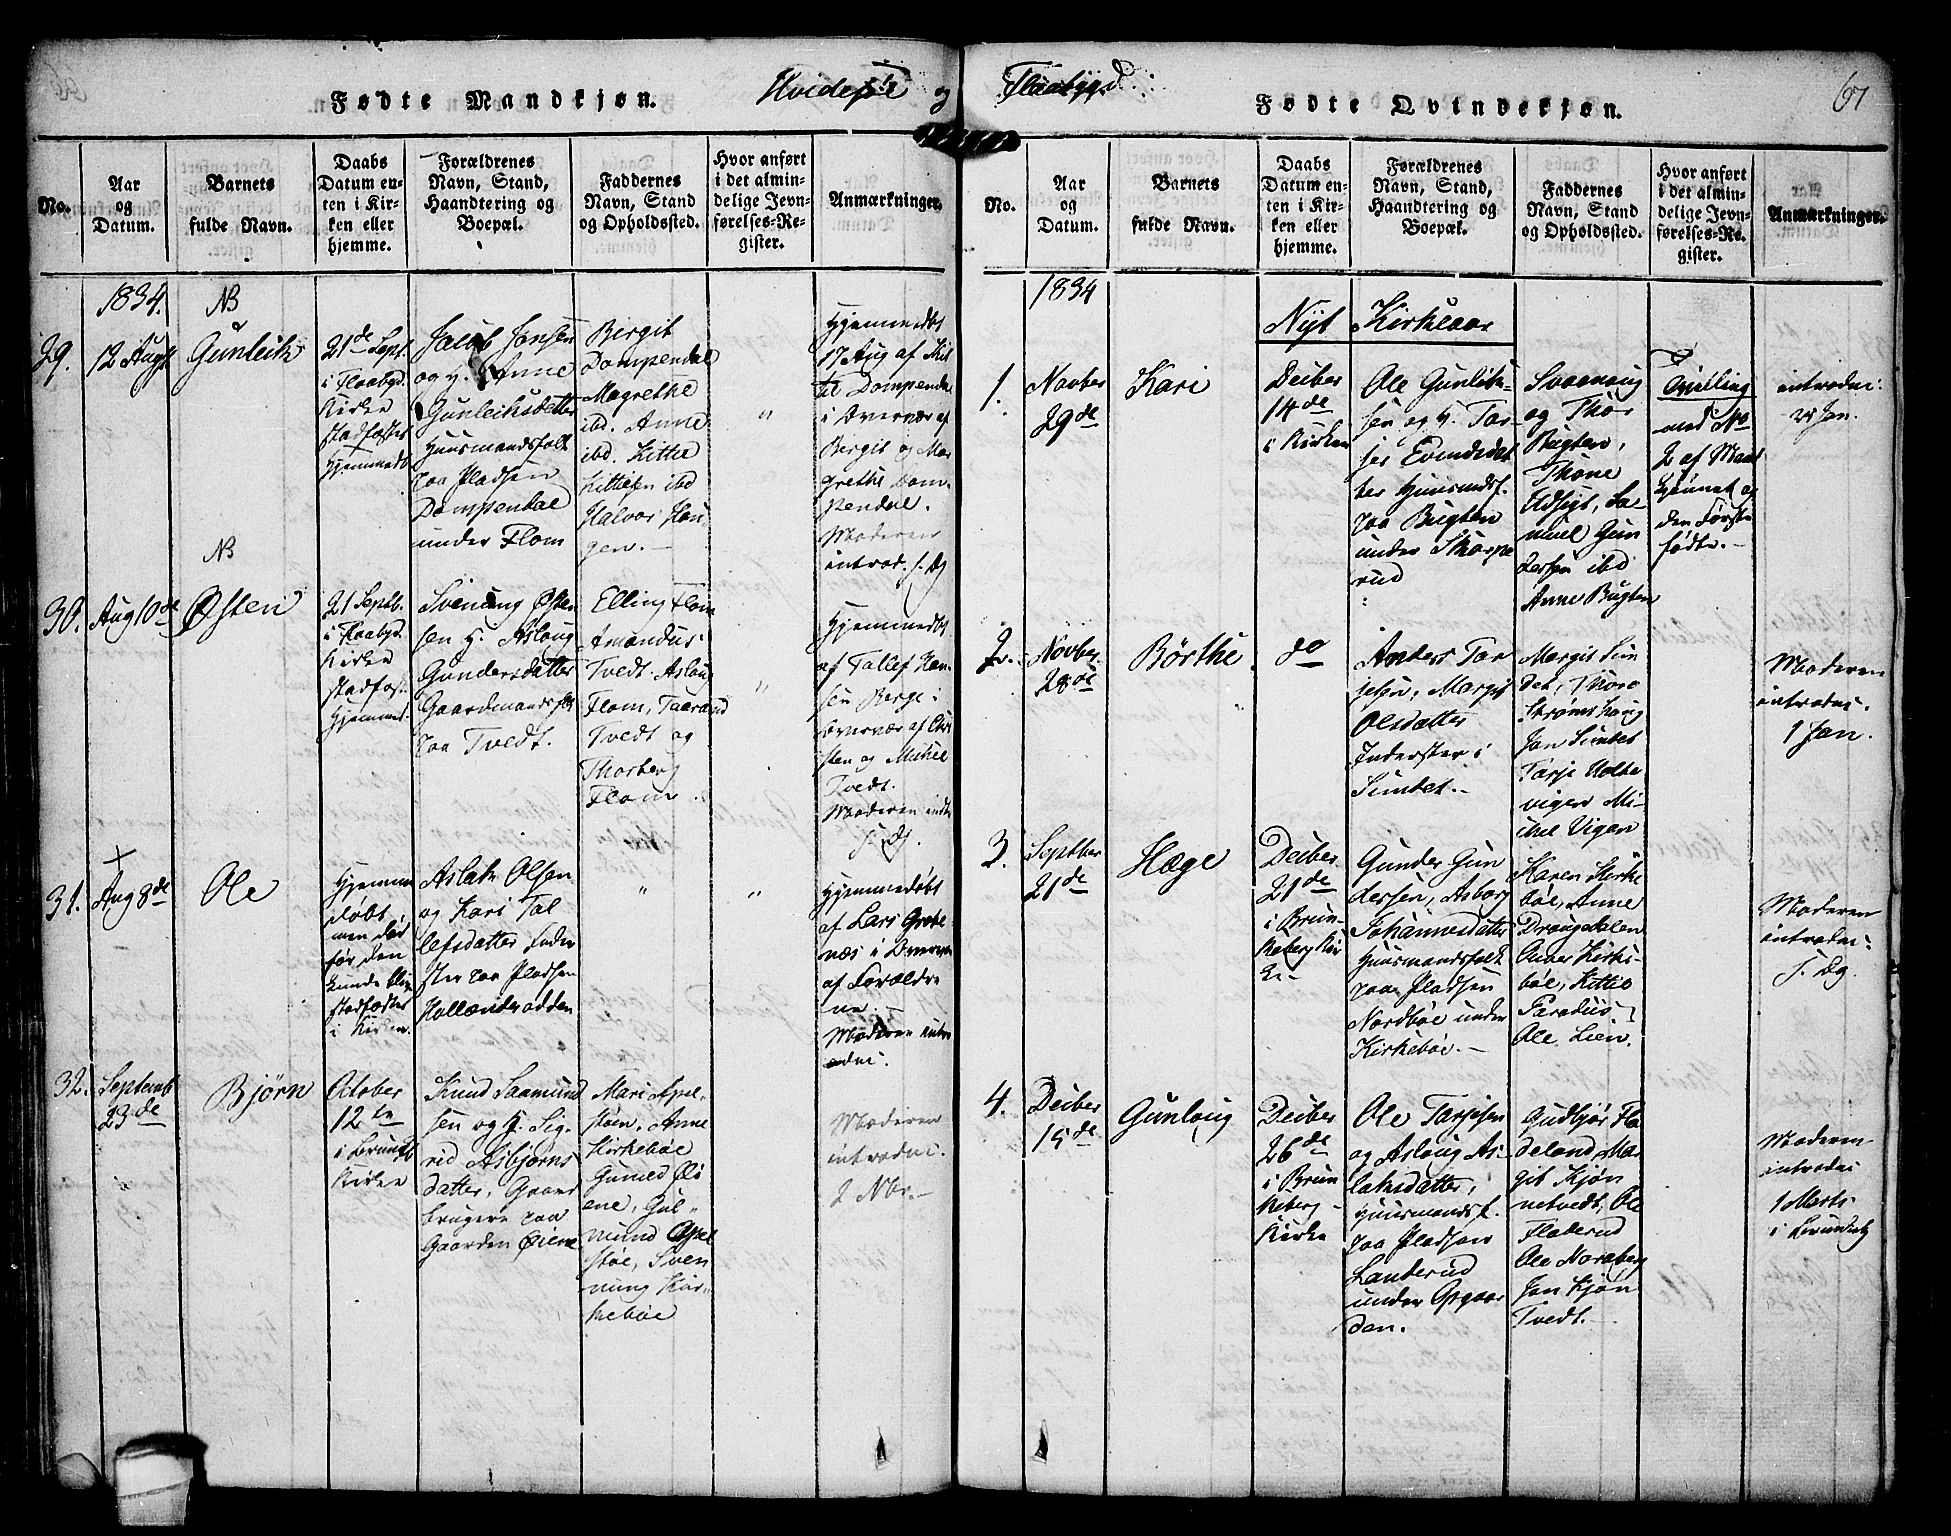 Hvidesøe og Flaabygd.
67
Fødte Mandkjøn.
No.
Aar
og
Datum.
Barnets
fulde Navn.
Daabs
Datum en-
ten i Kir-
ken eller
hjemme.
Forældrenes
Navn, Stand,
Haandtering og
Boepæl.
Faddernes
Navn, Stand
og Opholdssted.
Hvor anført
i det almin-
delige Jevn-
førelses-Re-
gister.
Anmærkninger.
1834.
NB
29.
12 Augt
Gunleik
21de Sept.
i Flaabygd.
Kirke
stadfæstet
Hjemmedb.
Jacob Jansen
og H. Anne
Gunleiksdatter
Huusmandsfolk
paa Pladsen
Dompendal
under Flom
Bergit
Dompendal
Magrethe
ibd. Anne
ibd. Kittil
Kittilsen ibd
Halvor Hau-
gen.
"
Hjemmedbt
17 Aug af Kit-
til Dompendal
i Overvær af
Bergit og Mar
grethe Dom-
pendal.
Moderen
introd. s. D
NB
30.
Aug 10de
Østen
21 Septb.
i Flaabyd.
Kirke
stadfæs.
Hjemmed.
Svenung Østen
sen H. Aslaug
Gundersdatter
Gaardmandsfolk
paa Tvedt.
Elling Flom
Amandus
Tvedt Aslaug
Flom, Taarand
Tvedt og
Thorberg
Flom.
"
Hjemmedbt
af Tallef Han-
sen Berge i
Overvær af
og
Tvedt.
Moderen
s. D.
31.
Aug 8de
Ole
Hjemme
døbt
men død
før den
kunde blive
stadfæstet
i Kirken.
Aslak Olsen
og Kari Tal
lefsdatter Inder
ster paa Pladsen
Hollænderodden
"
"
Hjemmedøbt
af Lars Grobe-
næs i Overvær
af Forældre
ne.
Moderen intro
duc.
32.
Septemb
23de
Bjørn
October
12te
i Brunkb
Kirke
Knud Saamund
sen og H. Sig-
rid Asbjørns
datter, Gaard
brugere paa
Gaarden Øiene
Mari Apel-
støen, Anne
Kirkebøe
Gunild Øi
ene, Gul-
mund Apel
støe, Sven
nung Kir-
kebøe
Moderen
introduc.
2 Nbr.
Fødte Qvindekjøn.
No.
Aar
og
Datum.
Barnets
fulde Navn.
Daabs
Datum en-
ten i Kir-
ken eller
hjemme.
Forældrenes
Navn, Stand,
Haandtering og
Boepæl.
Faddernes
Navn, Stand
og Opholdssted.
Hvor anført
i det almin-
delige Jevn-
førelses-Re-
gister.
Anmærkninger.
1834
Nyt Kirkeaar
1.
Novber
29de
Kari
Deiber
14de
i Kirken
Ole Gunlik-
sen og H. Tar-
jer Evindsdat
ter Huusmdsf.
paa Bugten
under Skarpe
rud
Svaenaug
og Thor
Bugten,
Thone
Udsigt, Sa-
muel Gun
dersen ibd
Anne Bugten
Tvilling
med No
2 af Mand
kjønnet og
den første
fødte.
introduc.
Jan.
2.
Novber
28de
Børthe
do
Anders Tar
jesen, Margit
Olsdatter
Inderster i
Sundet.
Margit Sun
det, Thore
Strømshaug
Jan Sundet
Tarje Holte
vigen Mi-
chel Vigan
Moderen
introduc.
1 Jan.
3.
Septber
21de
Hæge
Deiber
21de
i Brun-
keberg Kir
ke
Gunder Gun
dersen, Asborg
Johannesdatter
Huusmandsfolk
paa Pladsen
Nordbøe under
Kirkebøe.
Karen Kirke
bøe, Anne
Draugedalen
Kirke-
bøe, Kittil
Paradiis
Ole Lien.
Moderen
introduc.
s. Dg.
4.
Deiber
15de
Gunloug
Deiber
26de
i Brun
keberg
Kirke
Ole Tarjesen
og Aslaug As-
laksdatter,
Huusmandsf.
paa Pladsen
Landerud
under Opgaar
den.
Gudbjør Fla
deland, Mar-
git Kjøn
netvedt, Ole
Flaterud
Ole Norebørg
Jan Kjøn
Tvedt.
Moderen
introduc
1 Marts
i Brunkeb